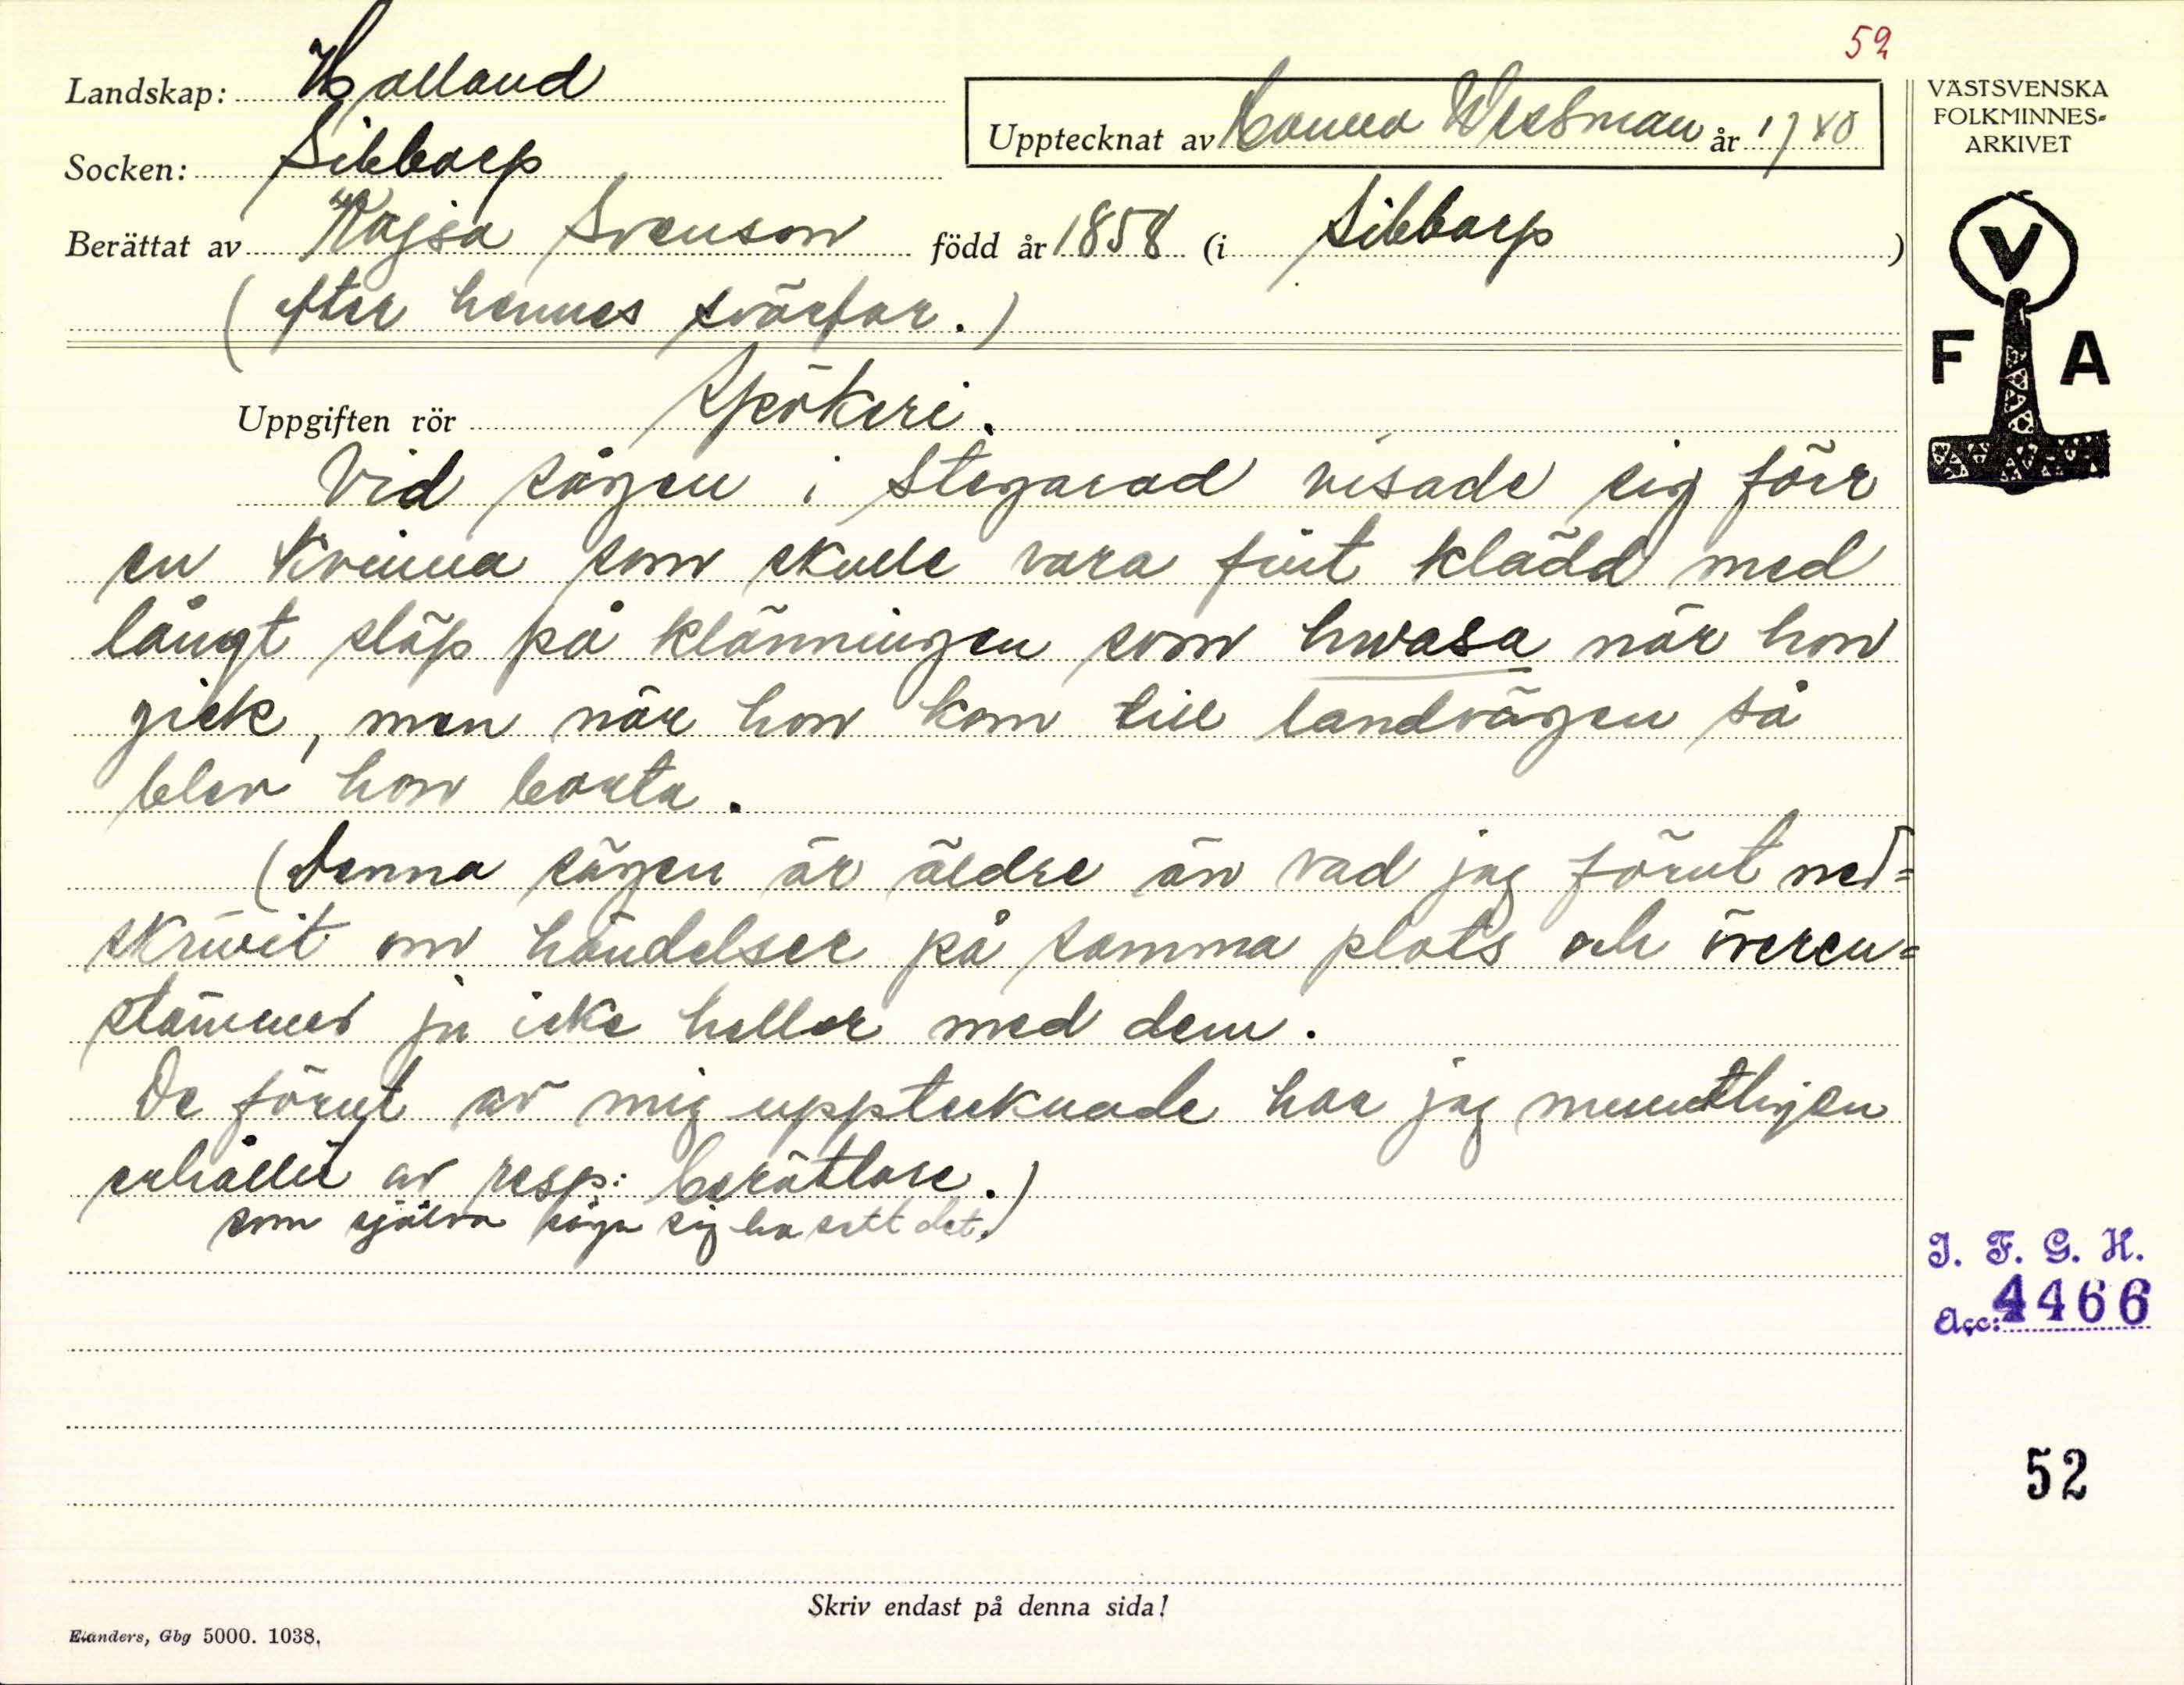 52
Landskap: Halland
Socken: Sibbarp
Upptecknat av Hanna Wessman år 1940
Berättat av Kajsa Svenson född år 1858 (i Sibbarp)
(efter hennes svärfar.)
Uppgiften rör Spökeri.
Vid sågen i Stegarad visade sig förr
en kvinna som skulle vara fint klädd med
långt släp på klänningen som hwasa när hon
gick, men när hon kom till landvägen så
blev hon borta.
(Denna sägen är äldre än vad jag förut ned=
skrivit om händelser på samma plats och överen=
stämmer ju icke heller med dem.
De förut av mig upptecknade har jag muntligen
erhållit av resp: berättare.)
som själva säga sig ha sett det.)
Skriv endast på denna sida!
Elanders, Gbg 5000. 1038.
VÄSTSVENSKA
FOLKMINNES-
ARKIVET
V
F A
I. F. G. H.
Acc: 4466
52